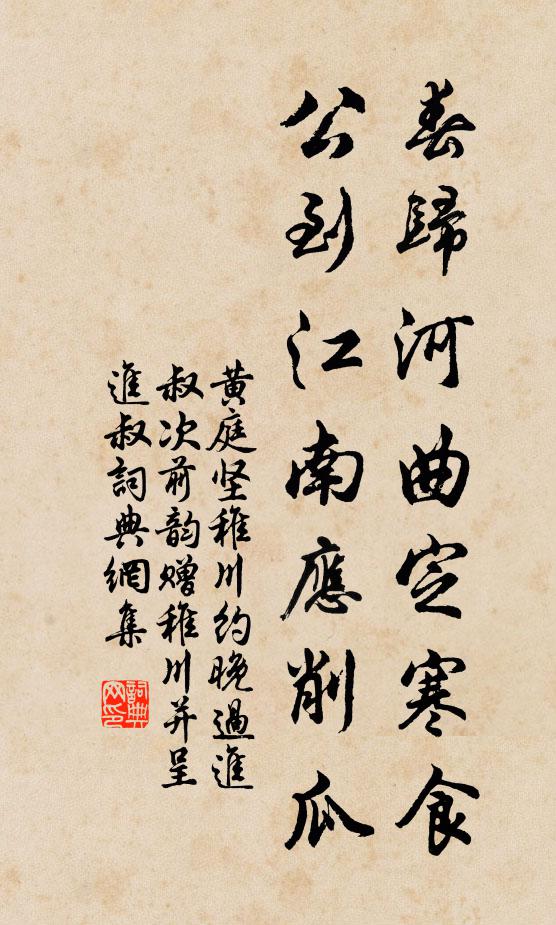 春歸河曲定寒食
公到江南應削瓜
黄庭坚稚川约晚過進
叔次前韵赠稚川并呈
進叔詞典網集
詞典網印